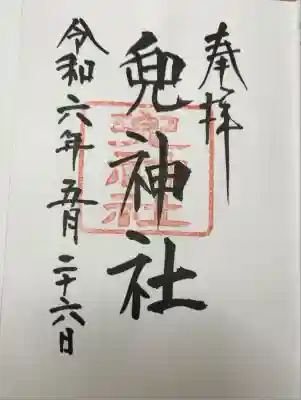 奉拝
兜神社
令和六年五月二十六日